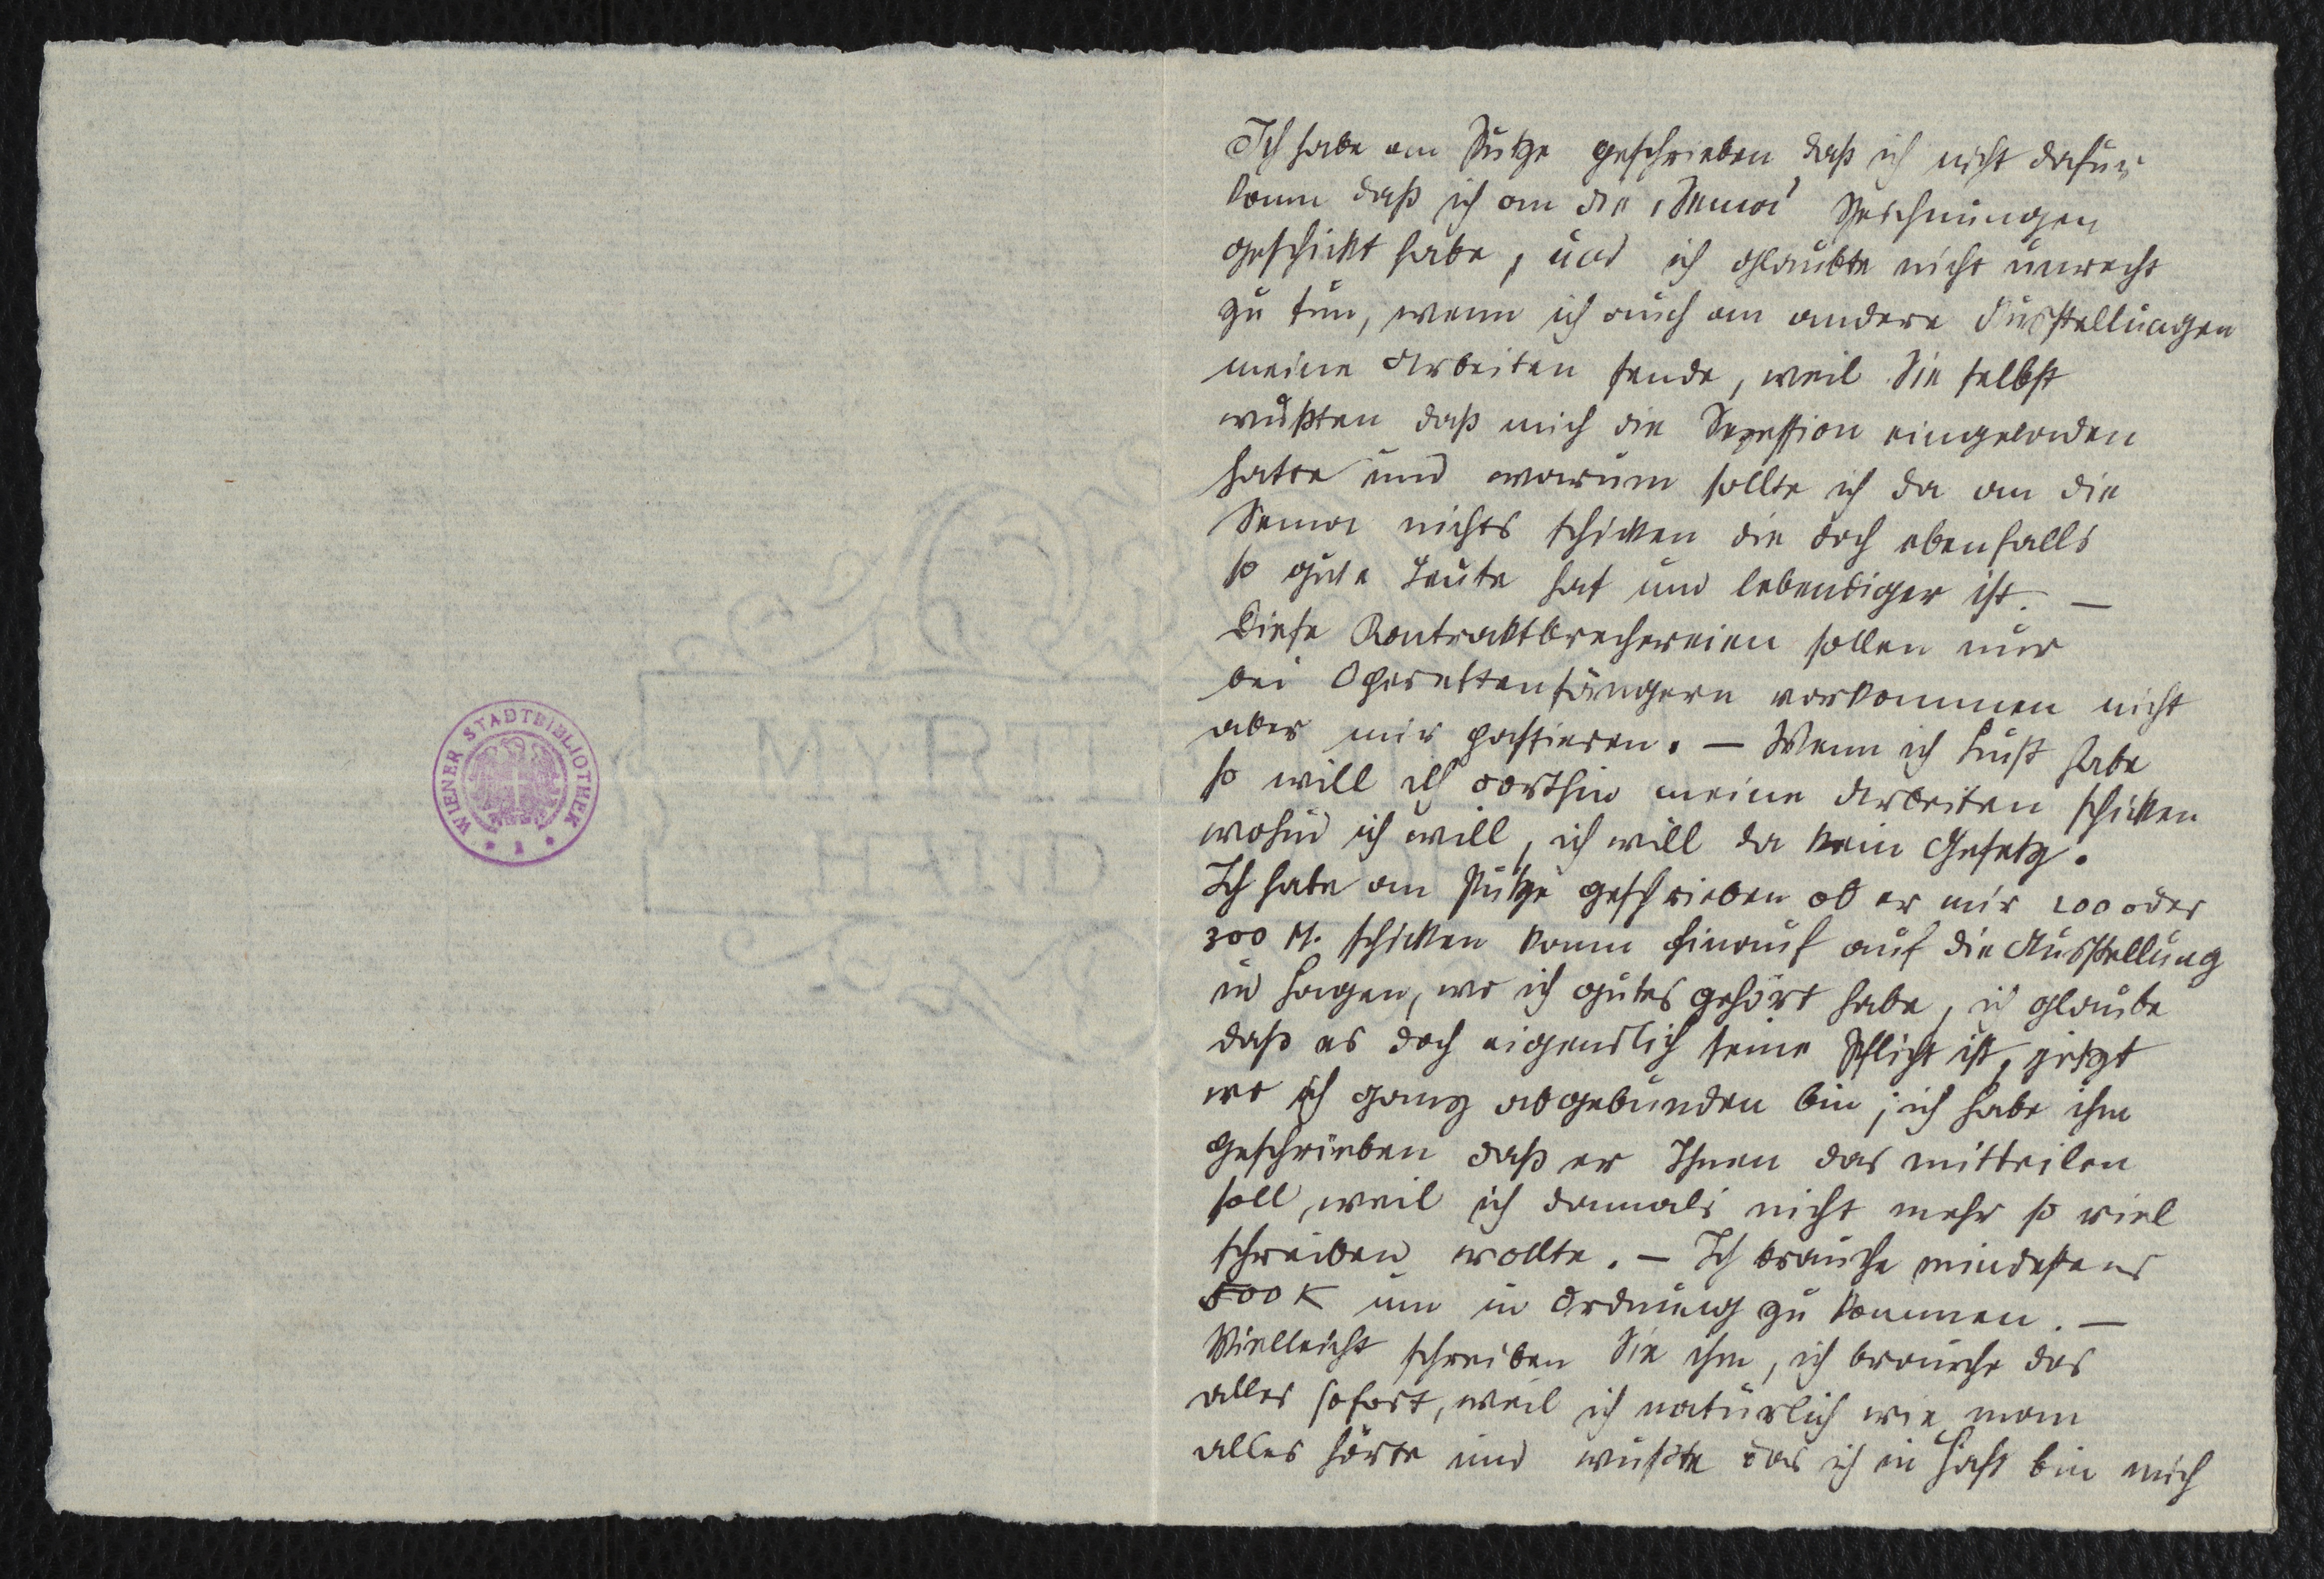 WIENER STADTBIBLIOTHEK
* 1 *
Ich habe an Putze geschrieben, daß ich nicht dafür
kann daß ich an die „Sema“ Zeichnungen
geschickt habe, und ich glaubte nicht unrecht
zu tun, wenn ich auch an andere Ausstellungen
meine Arbeiten sende, weil Sie selbst
wußten daß mich die Sezession eingeladen
hatte und warum sollte ich da an die
Sema nichts schicken die doch ebenfalls
so gute Leute hat und lebendiger ist. —
Diese Kontraktbrechereien sollen nur
bei Operettensängern vorkommen nicht
aber mir passieren. — Wenn ich Lust habe
so will ich dorthin meine Arbeiten schicken
wohin ich will, ich will da kein Gesetz.
Ich habe an Putze geschrieben ob er mir 200 oder
300 M. schicken kann hinauf auf die Ausstellung
in Hagen, wo ich gutes gehört habe, ich glaube
daß es doch eigendlich seine Pflicht ist, jetzt
wo ich ganz abgebunden bin; ich habe ihm
geschrieben daß er Ihnen das mitteilen
soll, weil ich damals nicht mehr so viel
schreiben wollte. — Ich brauche mindestens
500 K um in Ordnung zu kommen. —
Vielleicht schreiben Sie ihm, ich brauche das
alles sofort, weil ich natürlich wie man
alles hörte und wußte das ich in Haft bin mich